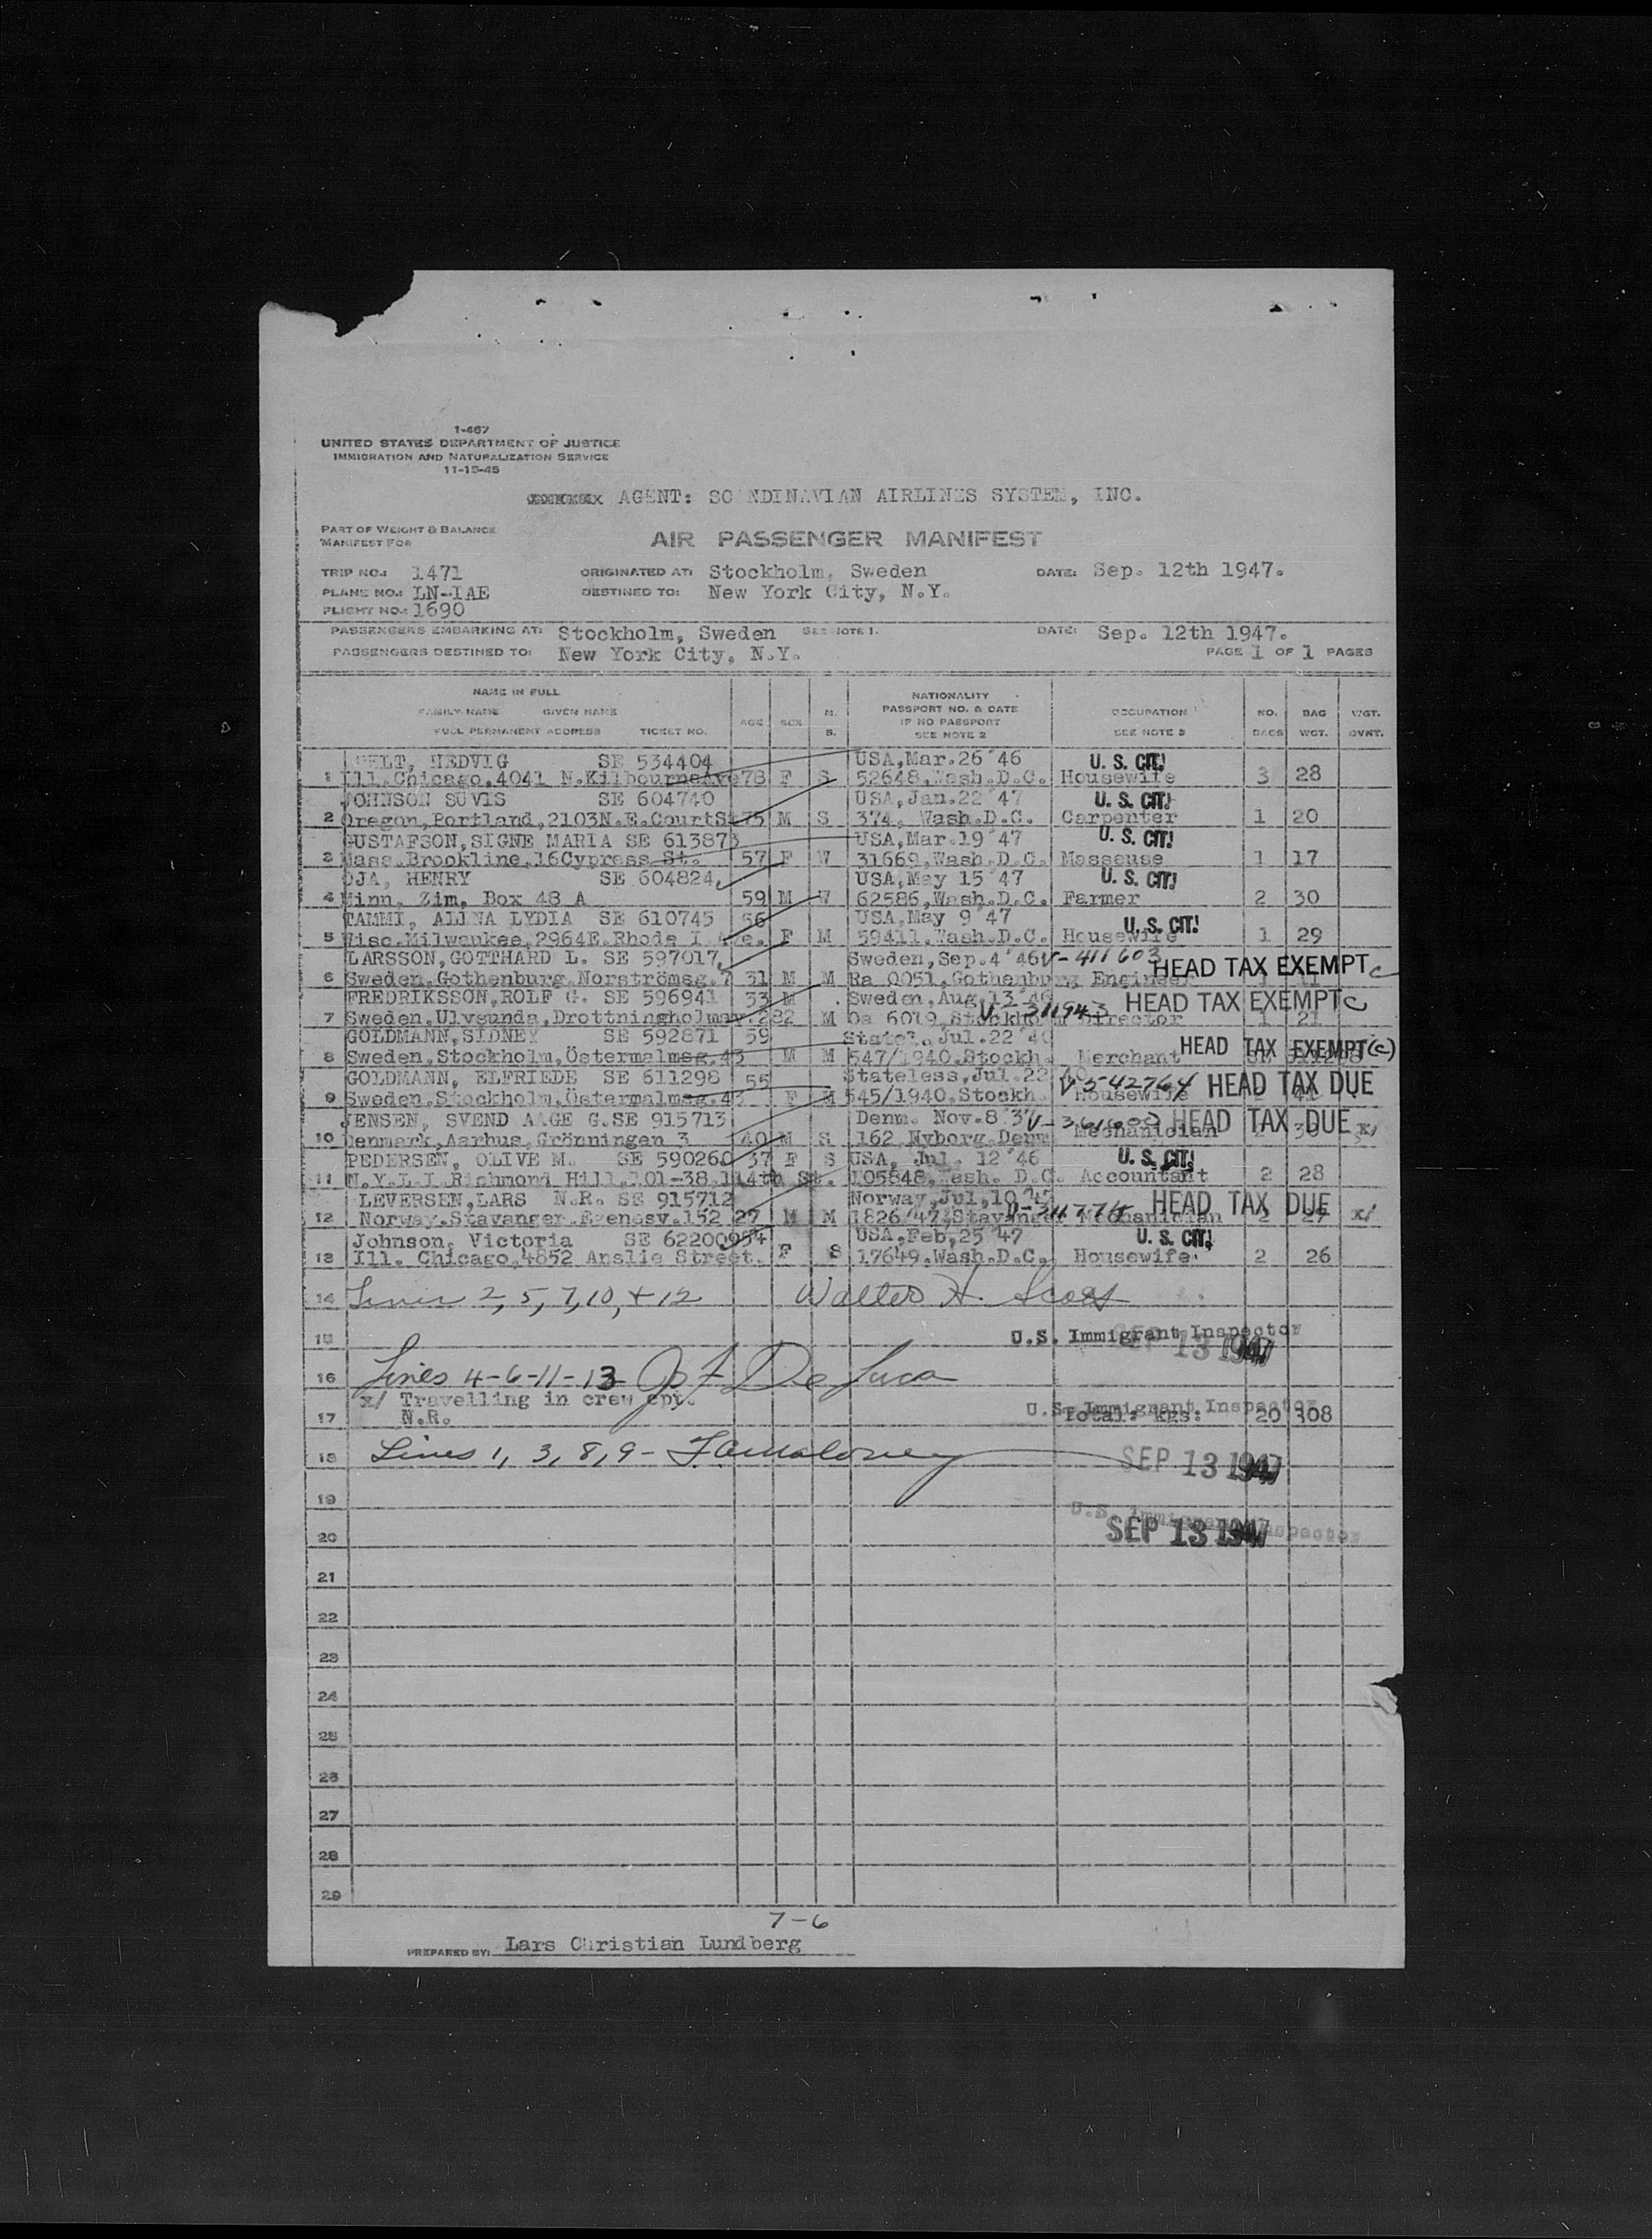 I-467
UNITED STATES DEPARTMENT OF JUSTICE
IMMIGRATION AND NATURALIZATION SERVICE
11-15-45
AGENT: SCANDINAVIAN AIRLINES SYSTEM, INC.
PART OF WEIGHT & BALANCE
MANIFEST FOR
AIR PASSENGER MANIFEST
TRIP NO.: 1471 ORIGINATED AT: Stockholm, Sweden DATE: Sep. 12th 1947.
PLANE NO.: LN-IAE DESTINED TO: New York City, N.Y.
FLIGHT NO.: 1690
PASSENGERS EMBARKING AT: Stockholm, Sweden SEE NOTE 1. DATE: Sep. 12th 1947.
PASSENGERS DESTINED TO: New York City, N.Y. PAGE 1 OF 1 PAGES
NAME IN FULL
FAMILY NAME GIVEN NAME
FULL PERMANENT ADDRESS TICKET NO.
AGE SEX M. S.
NATIONALITY
PASSPORT NO. & DATE
IF NO PASSPORT
SEE NOTE 2
OCCUPATION
SEE NOTE 3
NO. BAGS
BAG WGT.
WGT. OVWT.
HEDVIG SE 534404 USA,Mar.26 '46 U. S. CIT!
1 Ill.Chicago,4041 N.KilbourneAve 78 F S 52648,Wash.D.C. Housewife 3 28
JOHNSON SUVIS SE 604740 USA,Jan.22 '47 U. S. CIT!
2 Oregon,Portland,2103N.E.CourtSt 75 M S 374, Wash.D.C. Carpenter 1 20
GUSTAFSON,SIGNE MARIA SE 613873 USA,Mar.19 '47 U. S. CIT!
3 Mass.Brookline,16Cypress St. 57 F W 31669,Wash.D.C. Masseuse 1 17
OJA, HENRY SE 604824 USA,May 15 '47 U. S. CIT!
4 Minn, Zim, Box 48 A 59 M W 62586,Wash.D.C. Farmer 2 30
TAMMI, ALINA LYDIA SE 610745 56 USA,May 9 '47 U. S. CIT!
5 Wisc.Milwaukee,2964E.Rhode I Ave. F M 59411,Wash.D.C. Housewife 1 29
LARSSON,GOTTHARD L. SE 597017 Sweden,Sep.4 '46 V-411603 HEAD TAX EXEMPT c
6 Sweden,Gothenburg,Norströmsg.7 31 M M Ra 0051,Gothenburg Engineer 11
FREDRIKSSON,ROLF G. SE 596941 33 M Sweden,Aug.13 '46 V-311943 HEAD TAX EXEMPT c
7 Sweden,Ulvsunda,Drottningholmsv.282 M 6019,Stockholm Director 1 21
GOLDMANN,SIDNEY SE 592871 59 Statel.,Jul.22 '40 HEAD TAX EXEMPT (c)
8 Sweden,Stockholm,Östermalmsg.43 M M 547/1940,Stockh. Merchant
GOLDMANN, ELFRIEDE SE 611298 55 Stateless,Jul.22 40 V542764 HEAD TAX DUE
9 Sweden,Stockholm,Östermalmsg.43 F M 545/1940,Stockh. Housewife
JENSEN, SVEND AAGE G.SE 915713 Denm. Nov.8 HEAD TAX DUE
10 Denmark,Aarhus,Grönningen 3 40 M S 162 Nyborg Denm Mechanician 30 x/
PEDERSEN, OLIVE M. SE 590260 37 F S USA, Jul. 12 '46 U. S. CIT!
11 N.Y.L.I Richmond Hill,101-38,114th St. 105848,Wash. D.C. Accountant 2 28
LEVERSEN,LARS N.R. SE 915712 Norway,Jul,10 HEAD TAX DUE
12 Norway.Stavanger.Egenesv.152 27 M M 1826/47,Stavanger Mechanician 2 27 x/
Johnson, Victoria SE 622009 54 USA,Feb,25 '47 U. S. CIT!
13 Ill. Chicago,4852 Anslie Street. F S 17649.Wash.D.C. Housewife 2 26
14 Lines 2, 5, 7, 10, + 12 Walter H.
15 U.S. Immigrant Inspector
SEP 13 1947
16 Lines 4-6-11-13 De Luca
x/ Travelling in crew cpt.
17 N.R. U.S. Immigrant Inspector
Total: kgs: 20 308
18 Lines 1, 3, 8, 9 - Maloney SEP 13 1947
19
U.S. Immigrant Inspector
20 SEP 13 1947
21
22
23
24
25
26
27
28
29
7-6
PREPARED BY: Lars Christian Lundberg